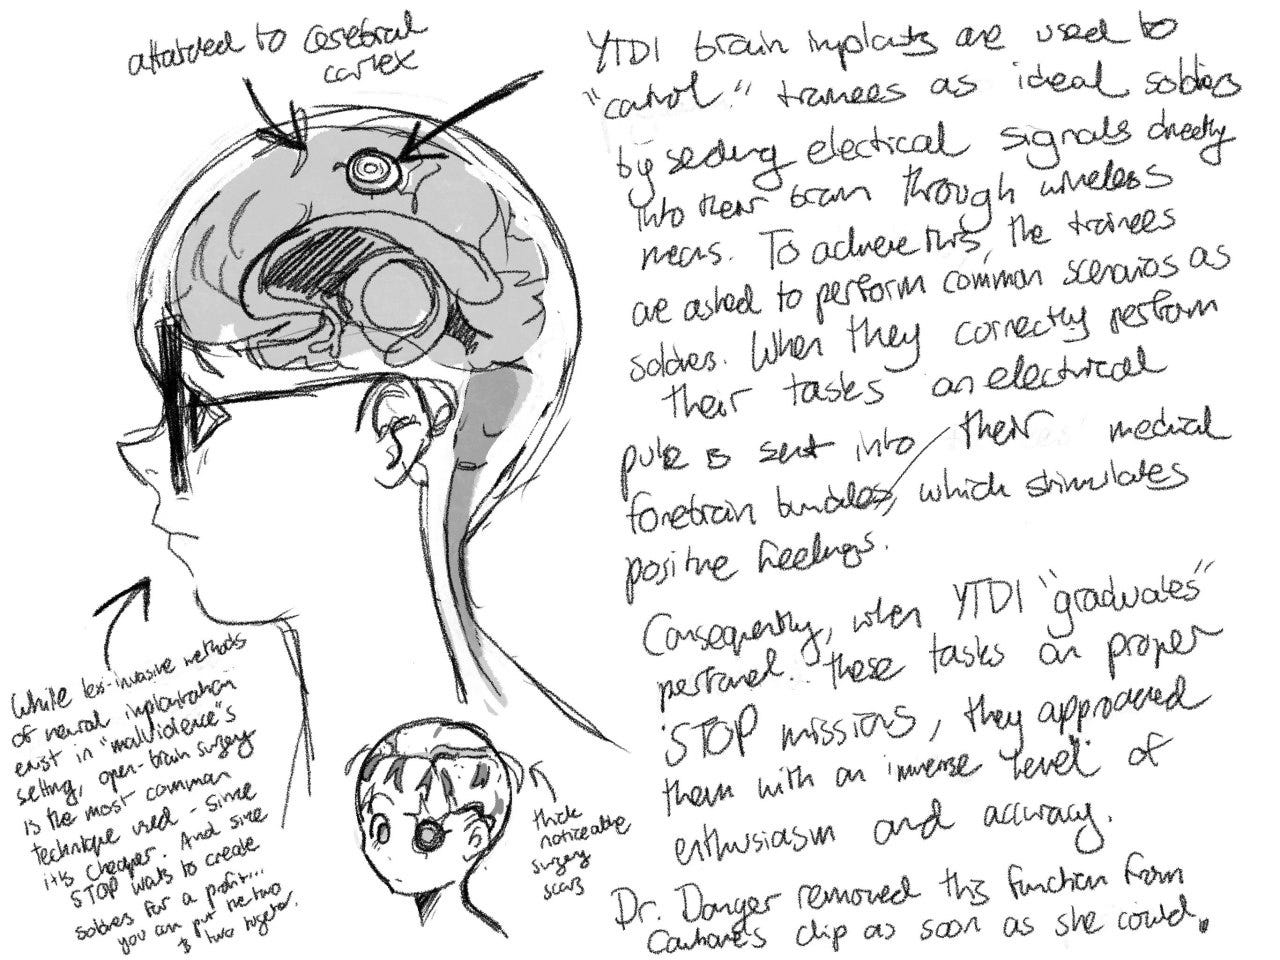 attatched to cerebral
cortex
YTDI brain implants are used to
"control" trainees as ideal soldiers
by sending electical signals directly
into their brain through wireless
means. To achieve this, the trainees
are asked to perform common scenarios as
soldiers. When they correctly perform
their tasks an electrical
pulse is sent into their medical
forebrain bundles, which stimulates
positive feelings.
Consequently, when YTDI "graduates"
personel these tasks on proper
STOP missions, they approached
them with an inverse level of
enthusiasm and accuracy.
Dr. Danger removed this function from
chip as soon as she could.
While less-invasive methods
of neural implantation
exist in "malviolence"s
setting, open-brain surgery
is the most common
technique used - since
it's cheaper. And since
STOP wants to create
soldiers for a profit...
you can put the two
& two together.
thick
noticeable
surgery
scars